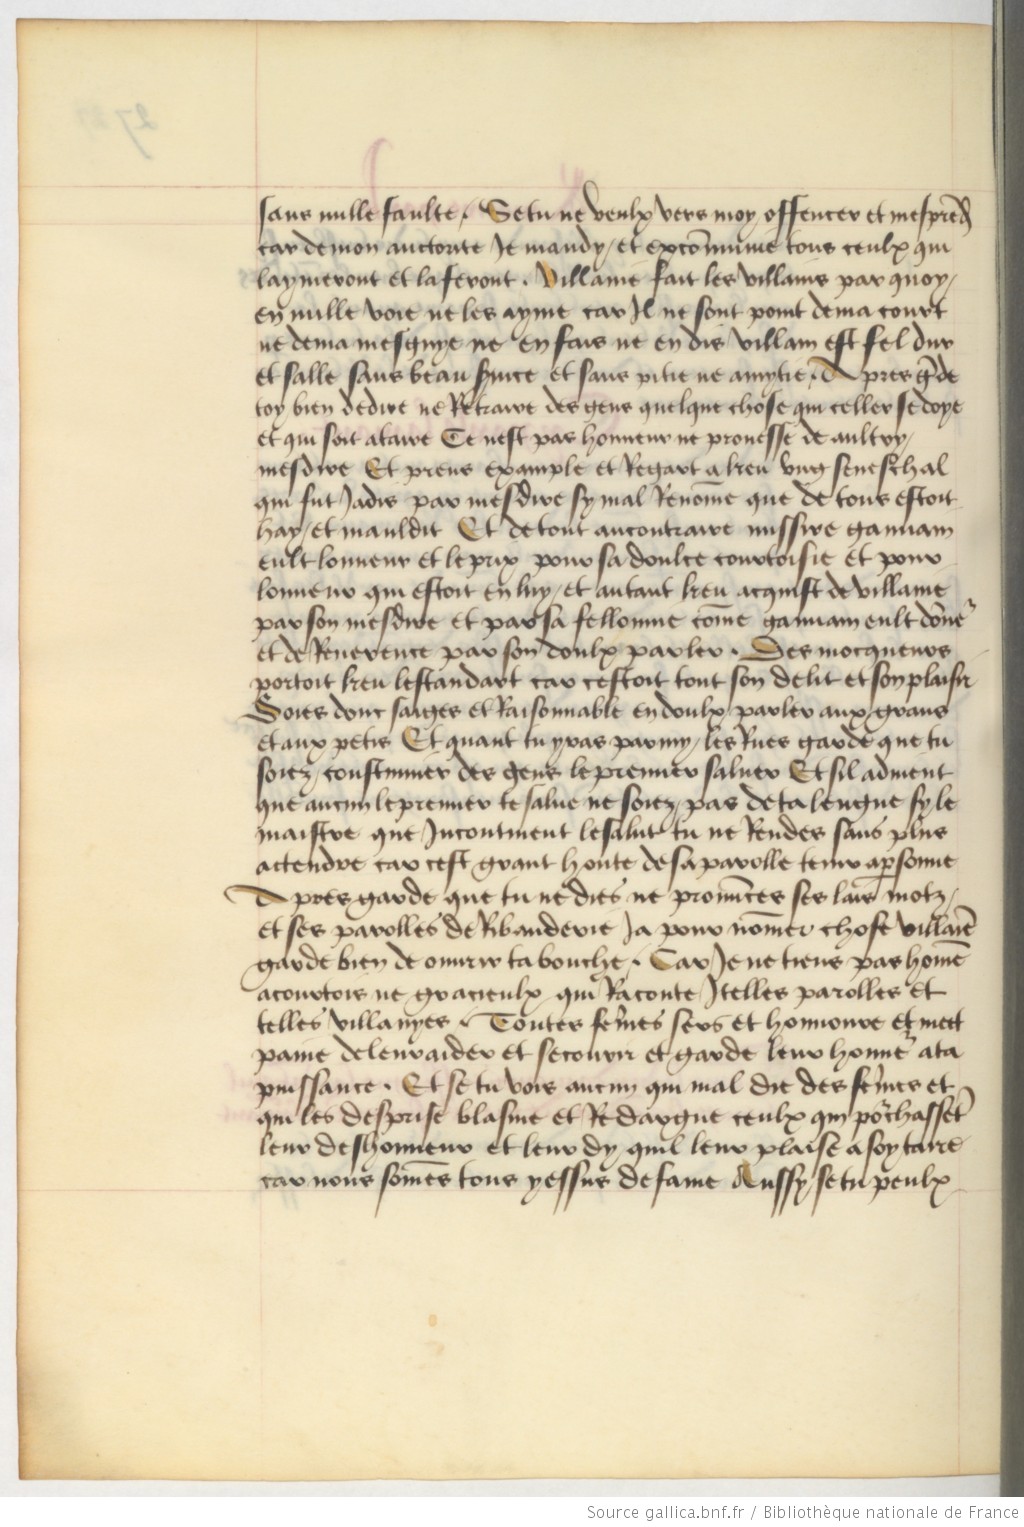 sans nulle faulte. Se tu ne veulx vers moy offencer et mesprẽdr̃
car de mon auctorite Je mauldy / et excõmunie tous ceulx qui
laymeront et la feront. Villanie fait les villains par quoy /
en nulle voie ne les ayme car Jl ne sont point de ma court
ne de ma mesgnye ne en fais ne en dis villain est fel dur
et salle sans beau s̃uice et sans pitie ne amytie. Apres g̃de
toy bien de dire ne Retraire des gens quelque chose qui celler se doye
et qui soit ataire Ce nest pas honneur ne prouesse de aultry /
mesdire Et prens example et Regart a keu vng seneschal
qui fut Jadis par mesdire sy mal Renõme que de tous estoit
hay / et mauldit Et de tout au contraire missire gauuain
eult lonneur et le prix pour sa doulce courtoisie et pour
lonneur qui estoit en luy / et autant keu acquist de villanie
par son mesdire et par sa fellonnie cõme gauuain eult dõne'
et de Reuerence par son doulx parler. Des mocqueurs
portoit keu lestandart car cestoit tout son delit et son plaisir
Soies donc saiges et Raisonnable en doulx parler aux grans
et aux petis Et quant tu yras parmy / les Rues garde que tu
soiez / coustumier des gens le premier saluer Et sil aduient
que aucun le premier te salue ne soiez / pas de ta lengue sy le
maistre que Jncontinent le salut tu ne Rendes sans plus
actendre car cest grant honte de sa parolle tenir a p̱sonne
Apres garde que tu ne dies ne pronũces ses lais motz /
et ses parolles de Ribauderie Ja pour nõmer chose villaiñe
garde bien de ouurir ta bouche. Car Je ne tiens pas hom̃e
a courtois ne gracieulx qui Raconte Jtelles parolles et
telles villanyes. Toutes fẽmes sers et honnoure et mect
paine de leur aider et secourir et garde leur honne' a ta
puissance. Et se tu vois aucun qui mal die des fẽmes et
qui les desprise blasme et Redargue ceulx qui põchassẽt
leur deshonneur et leur dy quil leur plaise a soy taire
car nous sõmes tous yessus de fame Aussy / se tu peulx